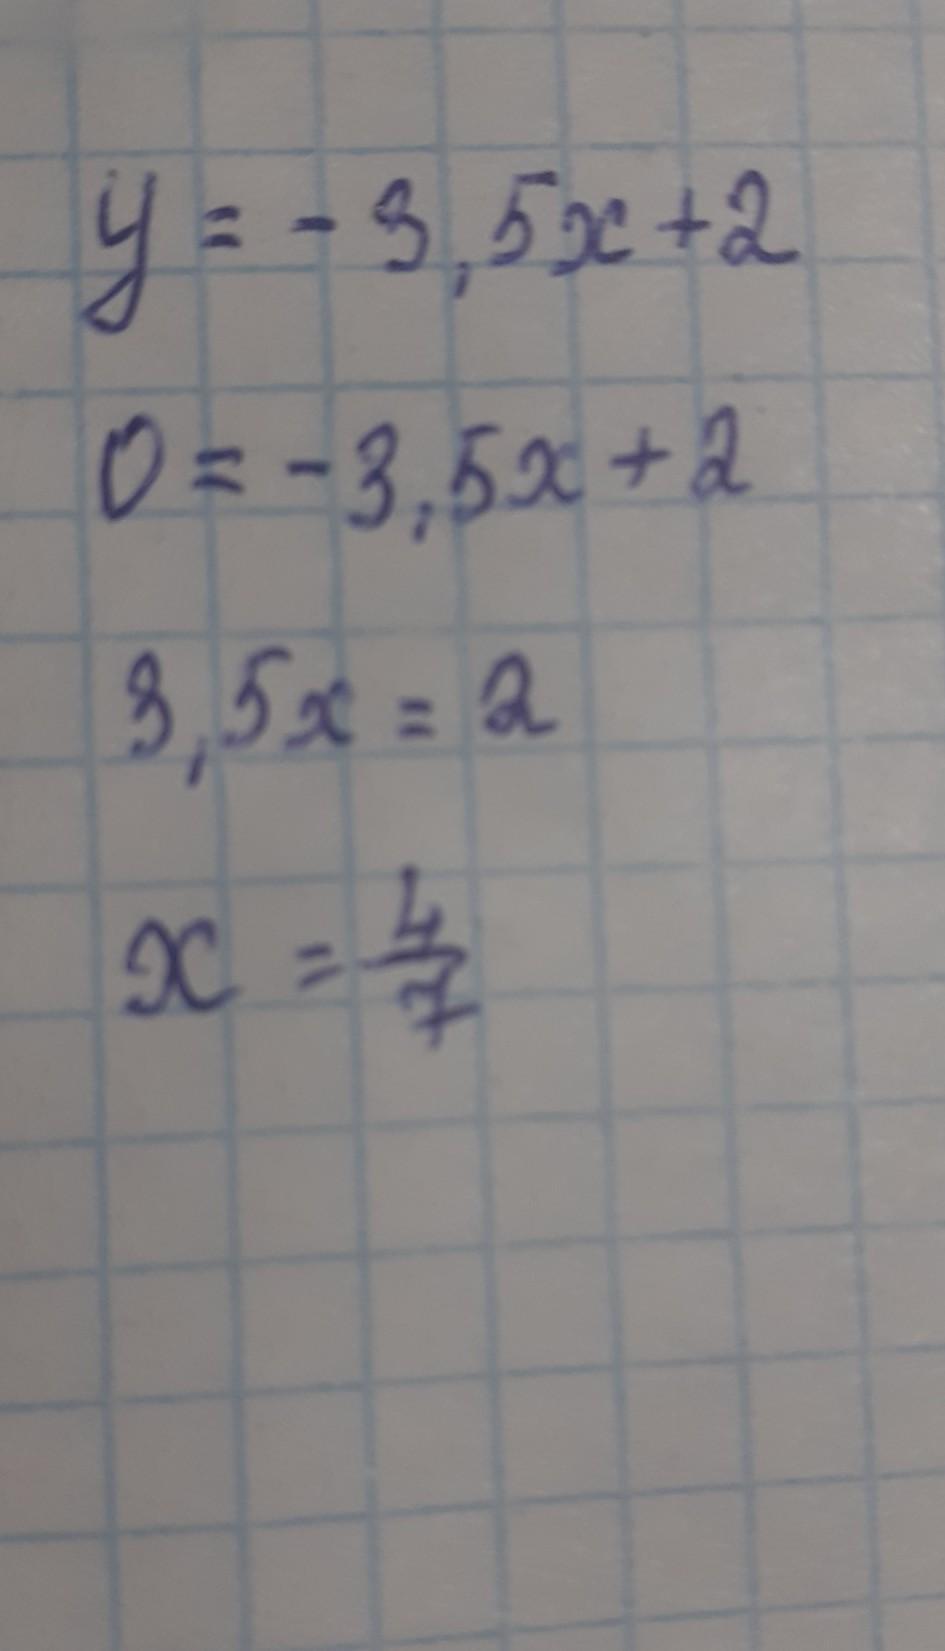 y = - 3,5x + 2
0 = - 3,5x + 2
3,5x = 2
x = 4/7